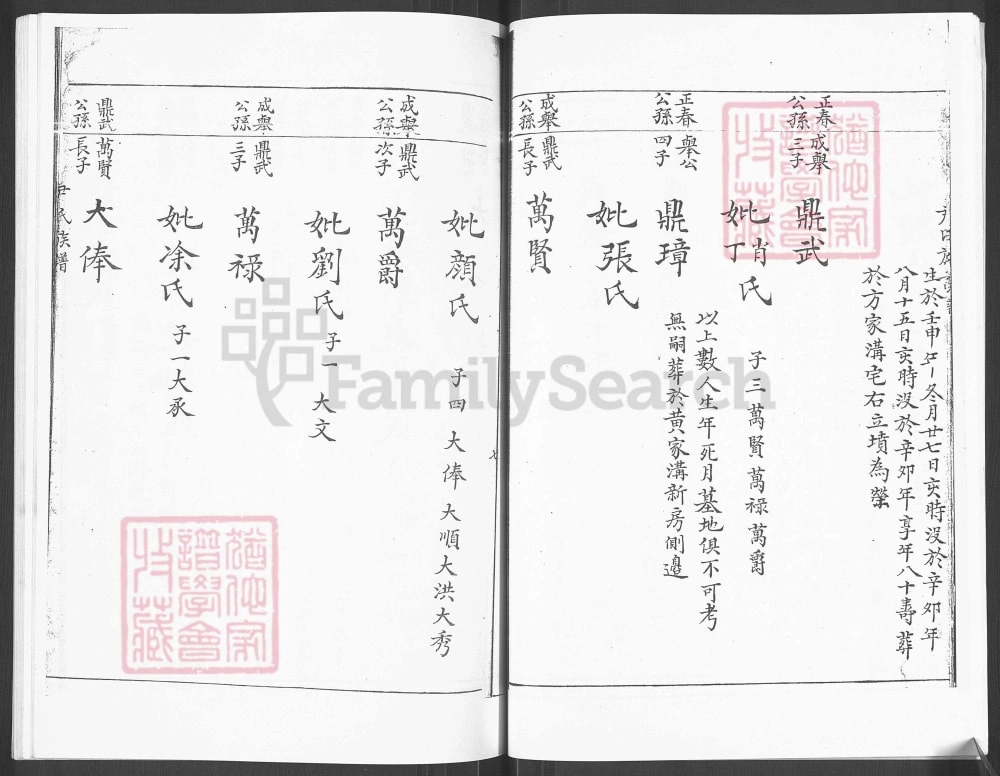 生於壬申年冬月廿七日亥時沒於辛卯年
八月十五日亥時沒於辛卯年享年八十壽葬
於方家溝宅右立墳為塋
正春 成舉
公孫 三子
鼎武
妣肖氏
丁
子三萬賢萬祿萬爵
正春 舉公
公孫 四子
鼎璋
以上數人生年死月墓地俱不可考
無嗣葬於黃家溝新房側邊
妣張氏
成舉 鼎武
公孫 長子
萬賢
妣顏氏
子四 大俸 大順大洪大秀
成舉 鼎武
公孫 次子
萬爵
妣劉氏
子一大文
成舉 鼎武
公孫 三子
萬祿
妣涂氏
子一大承
鼎武 萬賢
公孫 長子
大俸
尹氏族譜
七
FamilySearch